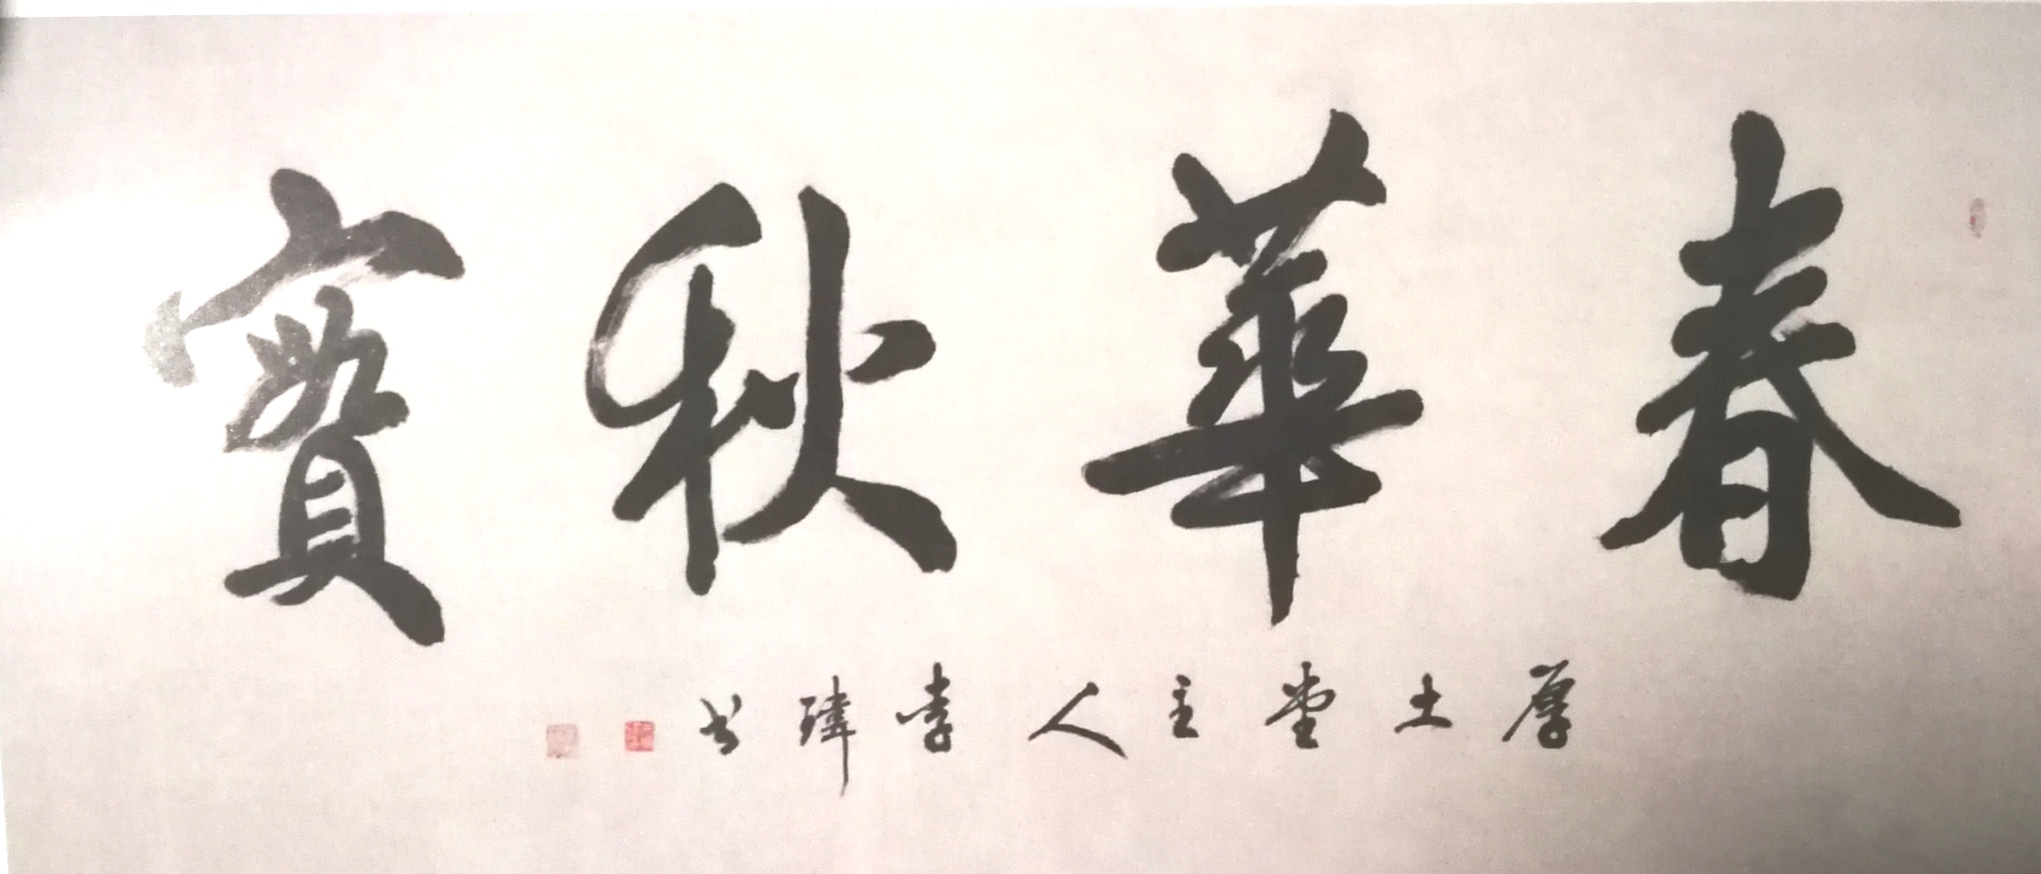 春華秋實
厚土堂主人李瑋书